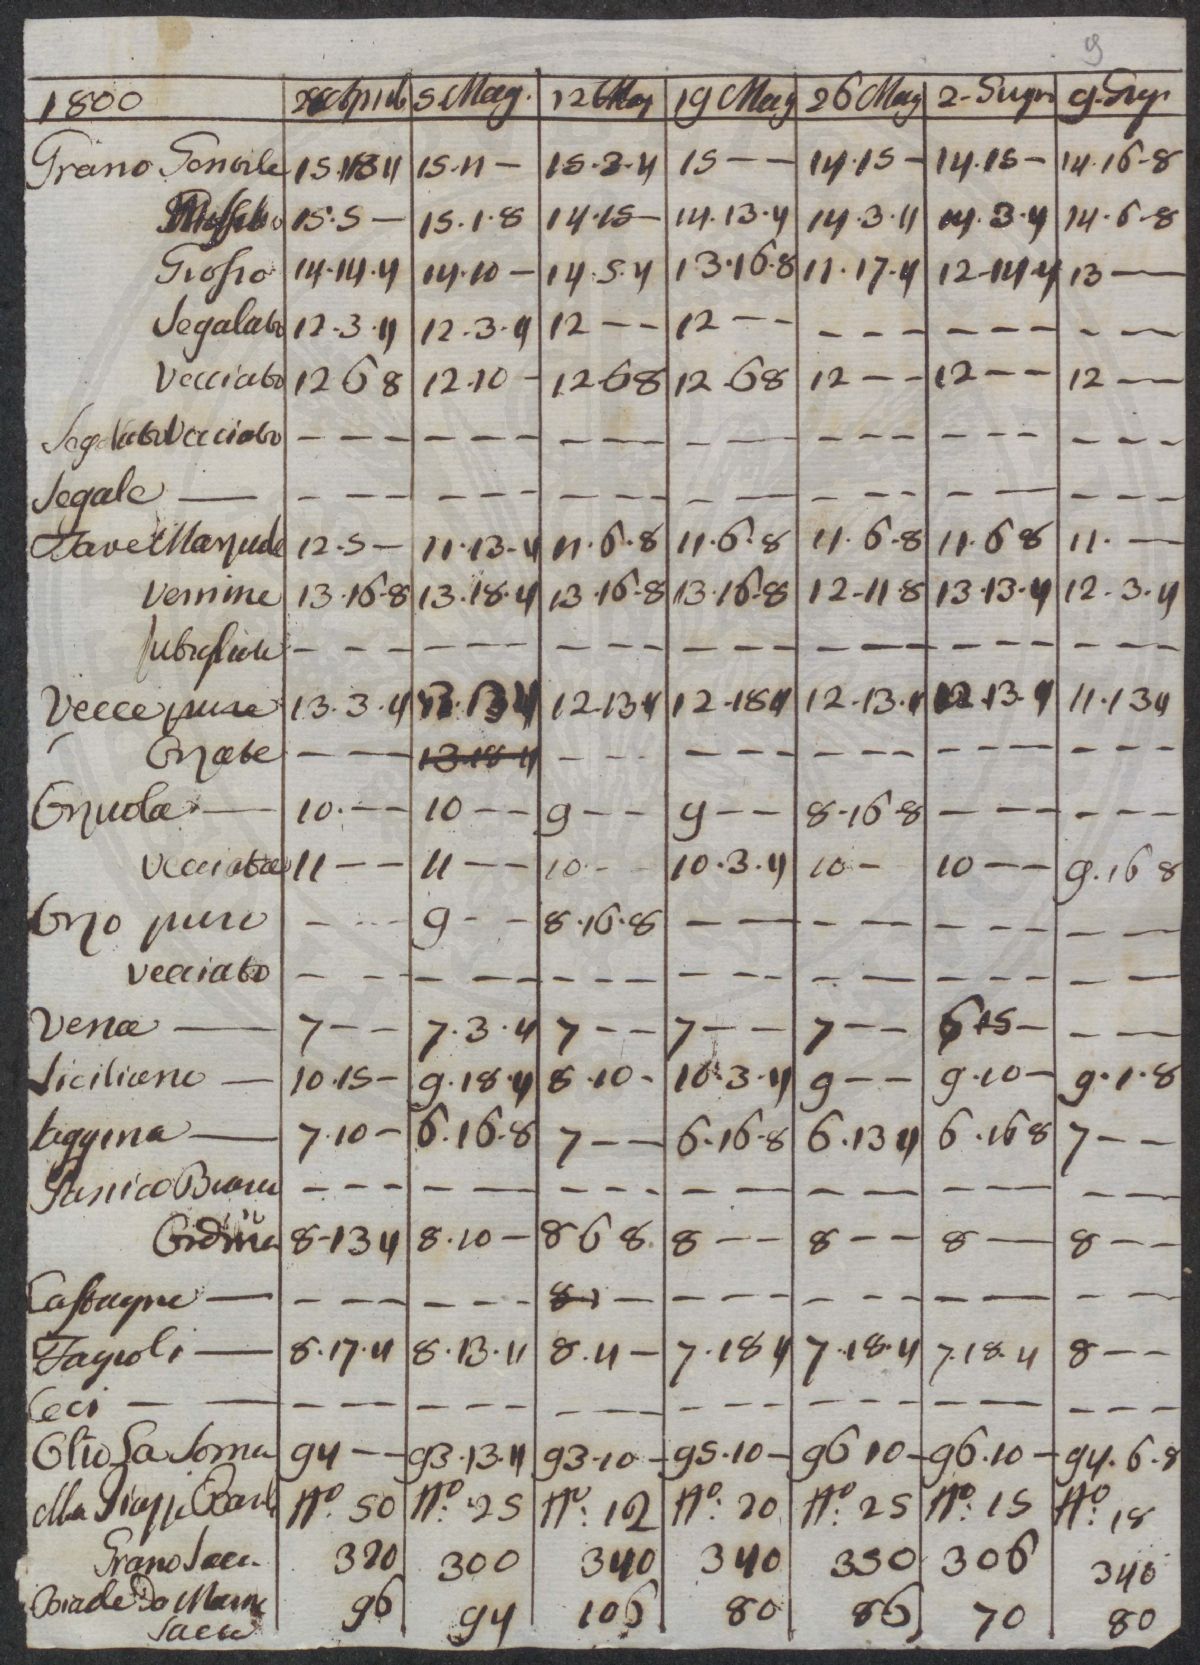 9
1800 28 Aprile 5 Mag. 12 Mag 19 Mag 26 Mag 2 - Giugn 9 - Giug
Grano Gentile 15.13.4 15.11 — 15.3.4 15 — — 14.15 — 14.15 — 14.16-8
15.5 — 15.1.8 14.15 — 14.13.4 14.3.4 14.3.4 14.6-8
Grosso 14.14.4 14.10 — 14.5.4 13.16.8 11.17.4 12-14.4 13 —
Segalato 12.3.4 12.3.4 12 — — 12 — — — — — — — — — — —
Vecciato 12 6 8 12.10 - 12-6 8 12.6 8 12 — — 12 — — 12 — —
Segalato Vecciato — — — — — — — — — — — — — — — — — — — — —
Segale — — — — — — — — — — — — — — — — — — — — —
Fave Marzuole 12.5 — 11.13.4 11.6.8 11.6.8 11.6-8 11.6 8 11. —
Vernine 13.16-8 13.18.4 13.16-8 13.16-8 12-11 8 13.13.4 12.3.4
— — — — — — — — — — — — — — — — — — — — —
Vecce pure 13.3.4 13.13 4 12-13 4 12-18 4 12-13.4 12.13.4 11.13 4
Orzate — — — 13.18 4 — — — — — — — — — — — — — — —
Orzuola — 10. — — 10 — — 9 — — 9 — — 8-16-8 — — — — — —
Vecciata 11 — — 11 — — 10 - - 10.3.4 10 - 10 — — 9.16 8
Orzo puro — — — 9 - - 8.16.8 — — — — — — — — — —
vecciato — — — — — — — — — — — — — — — — — — — —
Vena — 7 — — 7.3.4 7 — — 7 — — 7 — — 6 15 — — —
Siciliano — 10.15 - 9.18.4 8.10 - 10.3.4 9 — — 9.10 — 9.1.8
Saggina — 7.10 — 6.16-8 7 — — 6.16-8 6.13 4 6.16 8 7 — —
Panico — — — — — — — — — — — — — — — — — — —
Ordin 8-13 4 8.10 — 8 6 8 8 — — 8 — — 8 — — 8 — —
Castagne — — — — — — — 8 — — — — — — — — — — — —
Fagioli — 8.17.4 8.13.4 8.4 — 7.18 4 7.18.4 7.18.4 8 — —
Ceci — — — — — — — — — — — — — — — — — — — — —
Olio La Soma 94 — — 93.13.4 93.10 — 95.10 — 96 10 - 96.10 — 94.6.8
Alla No 50 No. 25 No. 12 No. 20 No. 25 No. 15 No. 18
Grano Sacc. 320 300 340 340 350 306 340
Biade
Sacc 96 94 106 80 86 70 80